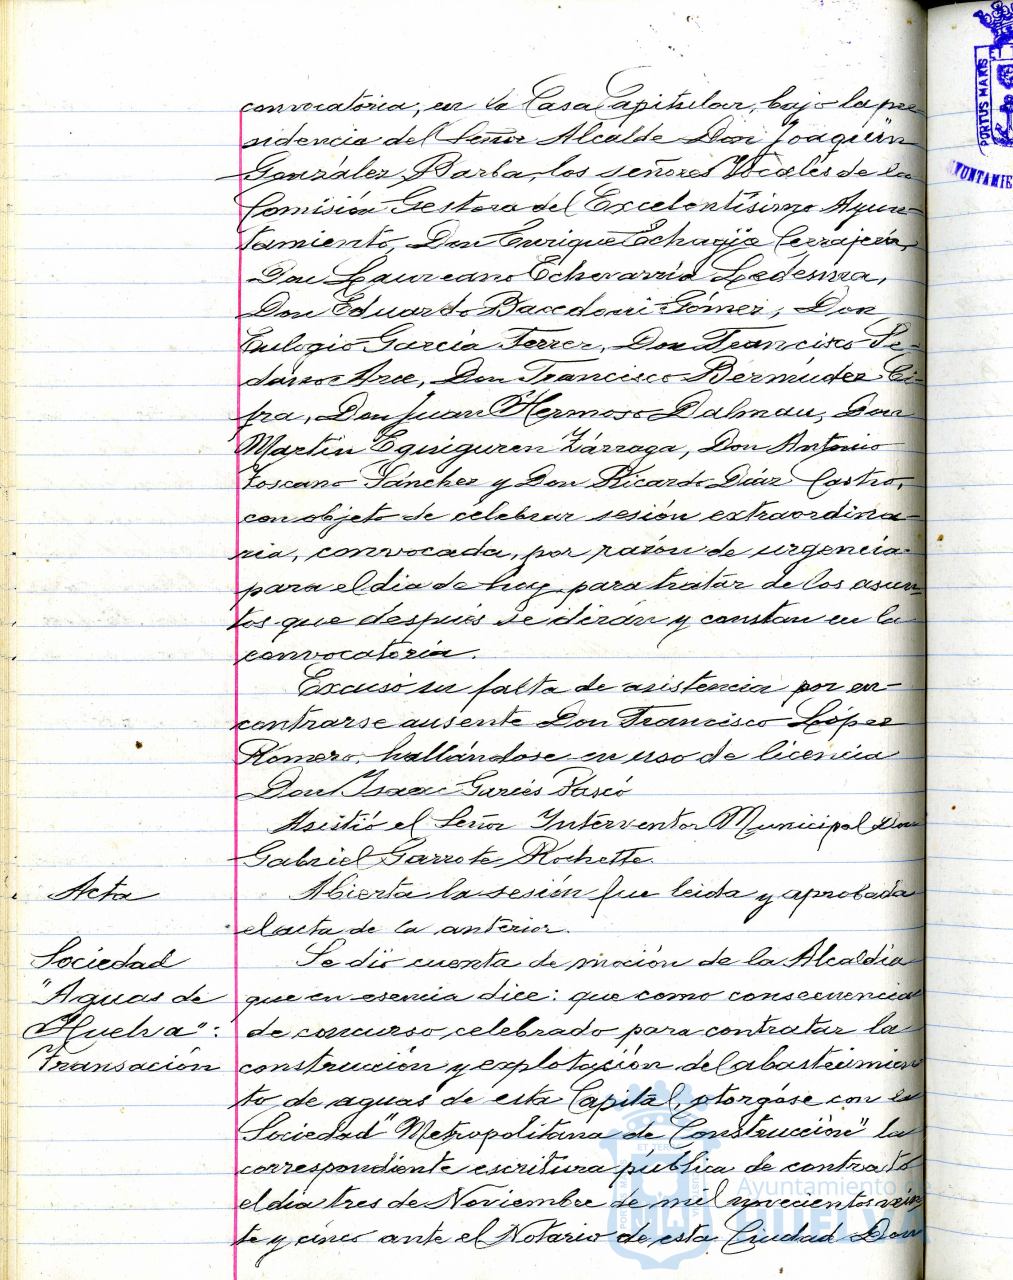 convocatoria, en la Casa Capitular, bajo la pre-
sidencia del Señor Alcalde Don Joaquín
González Barba, los señores Vocales de la
Comisión Gestora del Excelentísimo Ayun-
tamiento, Don Enrique Echagüe Cerrajería,
Don Laureano Echevarría Ledesma,
Don Eduardo Gómez, Don
Eulogio García Ferrer, Don Francisco Se-
dano Arce, Don Francisco Bermúdez Ci-
fra, Don Juan Hermoso Dalmau, Don
Martín Eguiguren Zárraga, Don Antonio
Toscano Sánchez y Don Ricardo Díaz Castro,
con objeto de celebrar sesión extraordina-
ria, convocada, por razón de urgencia
para el dia de hoy, para tratar de los asun-
tos que después se dirán y constan en la
convocatoria.
Excusó su falta de asistencia por en-
contrarse ausente Don Francisco López
Romero, hallándose en uso de licencia
Don Isaac
Asistió el Señor Interventor Municipal Don
Gabriel Garrote Rochette.
Acta
Abierta la sesión fue leida y aprobada
el acta de la anterior.
Sociedad
"Aguas de
Huelva":
Transación
Se dió cuenta de moción de la Alcaldía
que en esencia dice: que como consecuencia
de concurso celebrado para contratar la
construcción y explotación del abastecimien
to de aguas de esta Capital, otorgóse con la
Sociedad "Metropolitana de Construcción" la
correspondiente escritura pública de contrato
el dia tres de Noviembre de mil novecientos vein
te y cinco ante el Notario de esta Ciudad Don
PORTUS MARIS
AYUNTAMIE
Ayuntamiento de
HUELVA